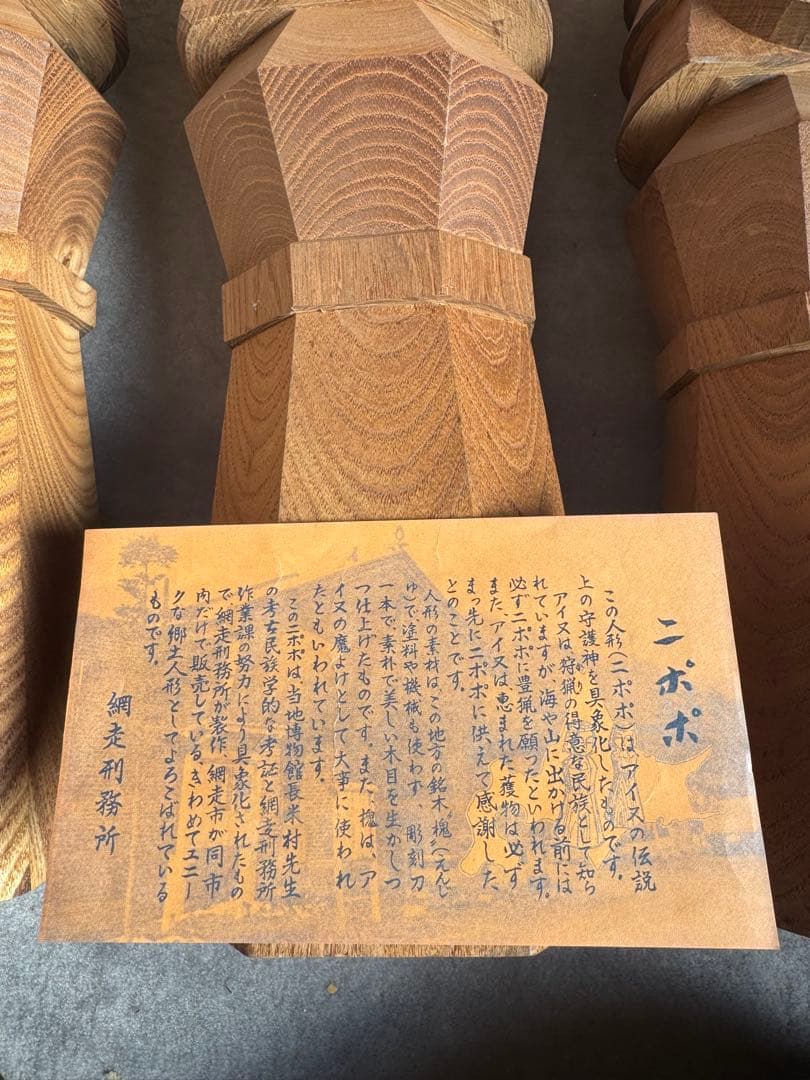 ニポポ
この人形(ニポポ)は、アイヌの伝説
上の守護神を具象化したものです。
アイヌは、狩猟の得意な民族として知ら
れていますが、海や山に出かける前には
必ずニポポに豊猟を願ったといわれます。
また、アイヌは恵まれた獲物は必ず
まっ先にニポポに供えて感謝した
とのことです。
人形の素材は、この地方の銘木“槐”(えんじ
ゅ)で塗料や機械も使わず、彫刻刀
一本で素朴で美しい木目を生かしつ
つ仕上げたものです。また、槐は、ア
イヌの魔よけとして大事に使われ
たともいわれています。
このニポポは、当地博物館長米村先生
の考古民族学的な考証と網走刑務所
作業課の努力により具象化されたもの
で、網走刑務所が製作、網走市が同市
内だけで販売している、きわめてユニー
クな郷土人形としてよろこばれている
ものです。
網走刑務所